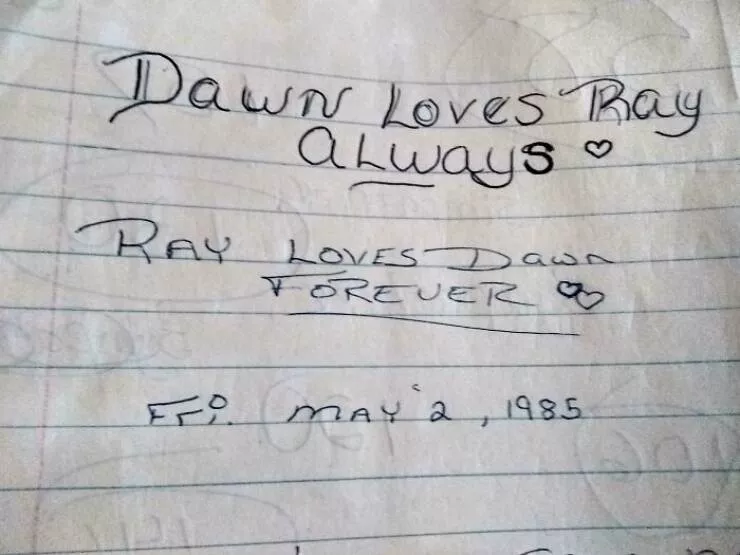 Dawn Loves Ray
ALways ♡
RAY LOVES Dawn
FOREVER ♡♡
Fri. MAY 2, 1985